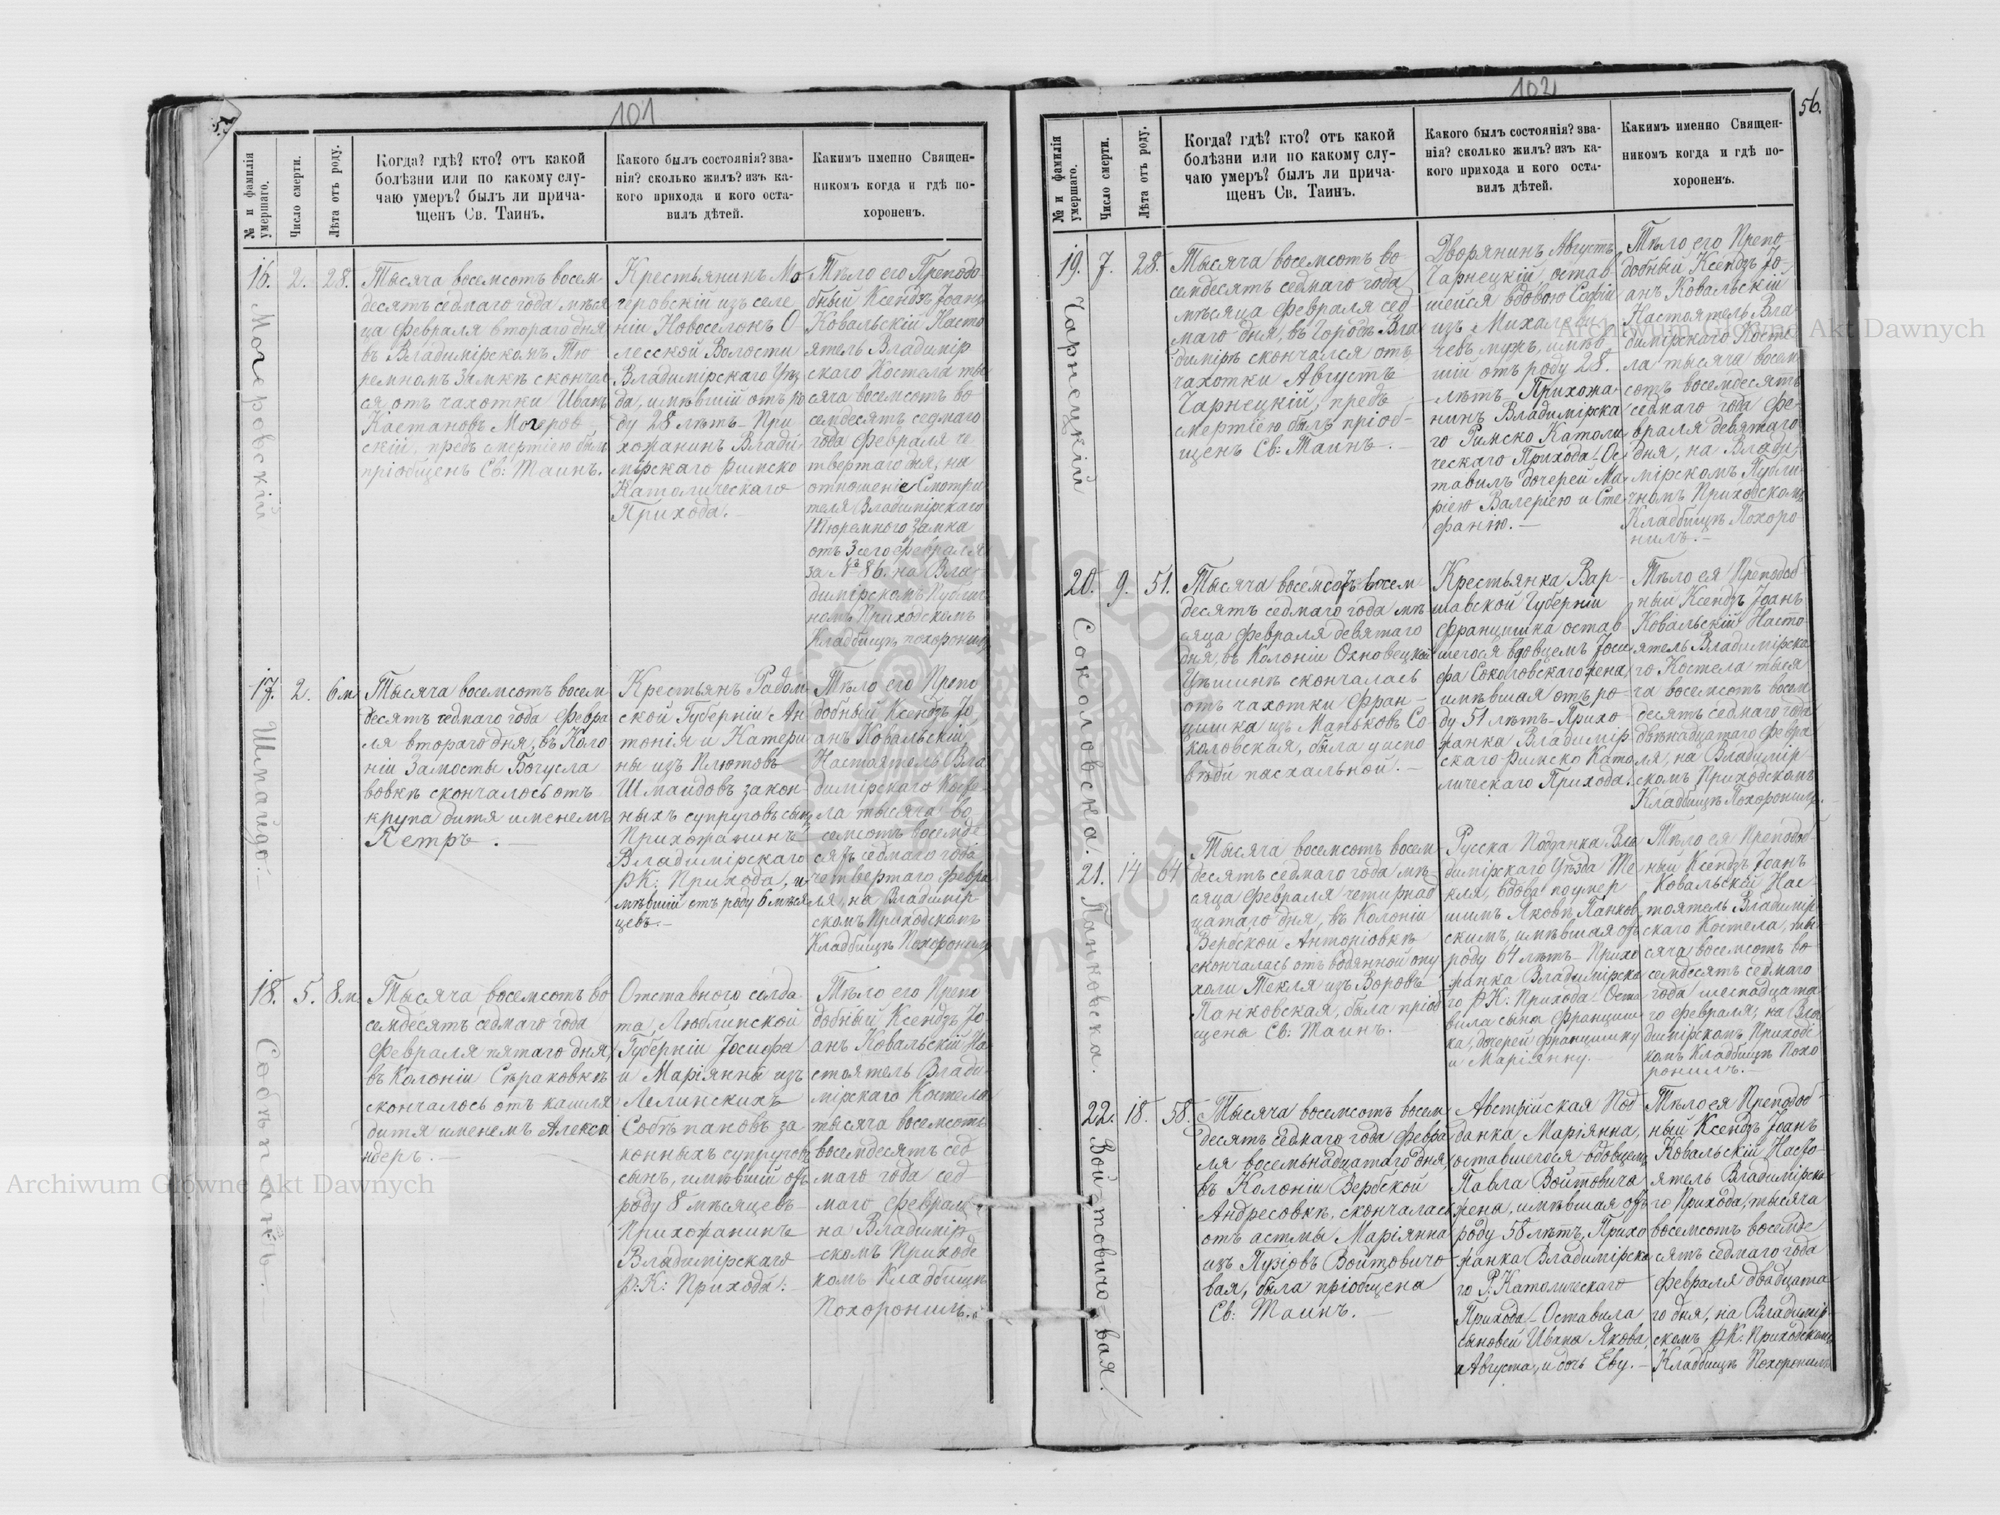 101
57
№ и фамилія умершаго.
Число смерти.
Лѣта отъ роду.
Когда? гдѣ? кто? отъ какой
болѣзни или по какому слу-
чаю умеръ? былъ ли прича-
щенъ Св. Таинъ.
Какого былъ состоянія? зва-
нія? сколько жилъ? изъ ка-
кого прихода и кого оста-
вилъ дѣтей.
Какимъ именно Священ-
никомъ когда и гдѣ по-
хороненъ.
16. Могеровскій
2.
28.
Тысяча восемсотъ восем-
десятъ седмаго года мѣся
ца Февраля втораго дня
въ Владимірскомъ Тю
ремномъ Замкѣ скончал
ся отъ чахотки Иванъ
Каетановъ Могеров
скій, предъ смертію былъ
пріобщенъ Св: Таинъ.
Крестьянинъ Мо
геровскій изъ селе
нія Новоселокъ О
лесской Волости
Владимірскаго Уѣз
да, имѣвшій отъ ро
ду 28 лѣтъ - При
хожанинъ Влади
мірскаго Римско
Католическаго
Прихода. -
Тѣло его Преподо
бный Ксендзъ Іоанъ
Ковальскій Насто
ятель Владимір
скаго Костела ты
сяча восемсотъ во
семдесятъ седмаго
года Февраля че
твертаго дня, на
отношеніе Смотри
теля Владимірскаго
Тюремнаго Замка
отъ 3 сего Февраля
за № 86. на Вла
димірскомъ Публич
номъ Приходскомъ
Кладбищѣ похоронилъ
17. Шмайдо.
2.
6 м
Тысяча восемсотъ восем
десятъ седмаго года Февра
ля втораго дня, въ Коло
ніи Замосты Богусла
вовкѣ скончалось отъ
крупа дитя именемъ
Петръ. -
Крестьянъ Радом
ской Губерніи Ан
тонія и Катери
ны изъ Плютовъ
Шмайдовъ закон
ныхъ супруговъ сынъ
Прихожанинъ
Владимірскаго
РК: Прихода, и
мѣвшій отъ роду 6 мѣся
цевъ. -
Тѣло его Препо
добный Ксендзъ Іо
анъ Ковальскій
Настоятель Вла
димірскаго Косте
ла тысяча во
семсотъ восемде
сятъ седмаго года
четвертаго Февра
ля, на Владимір
скомъ Приходскомъ
Кладбищѣ Похоронилъ
18.
5.
8 м.
Тысяча восемсотъ во
семдесятъ седмаго года
Февраля пятаго дня,
въ Колоніи Сѣраковкѣ
скончалось отъ кашля
дитя именемъ Алекса
ндеръ. -
Отставного солда
та, Люблинской
Губерніи Іосифа
и Маріянны изъ
Собѣпановъ за
конныхъ супруговъ
сынъ, имѣвшій отъ
роду 8 мѣсяцевъ
Прихожанинъ
Владимірскаго
Р: К: Прихода. -
Тѣло его Препо
добный Ксендзъ Іо
анъ Ковальскій На
стоятель Влади
мірскаго Костела
тысяча восемсотъ
восемдесятъ сед
маго года сед
маго Февраля
на Владимір
скомъ Приходс
комъ Кладбищѣ
Похоронилъ. -
102
56.
№ и фамилія умершаго.
Число смерти.
Лѣта отъ роду.
Когда? гдѣ? кто? отъ какой
болѣзни или по какому слу-
чаю умеръ? былъ ли прича-
щенъ Св. Таинъ.
Какого былъ состоянія? зва-
нія? сколько жилъ? изъ ка-
кого прихода и кого оста-
вилъ дѣтей.
Какимъ именно Священ-
никомъ когда и гдѣ по-
хороненъ.
19. Чарнецкій
7.
28.
Тысяча восемсотъ во
семдесятъ седмаго года
мѣсяца Февраля сед
маго дня, въ Городѣ Вла
димірѣ скончался отъ
чахотки Августъ
Чарнецкій, предъ
смертію былъ пріоб-
щенъ Св: Таинъ. -
Дворянинъ Августъ
Чарнецкій, остав
шейся вдовою Софіи
изъ
мужъ, имѣв
шій отъ роду 28.
лѣтъ - Прихожа
нинъ Владимірска
го Римско Католи
ческаго Прихода. Ос
тавилъ дочерей Ма
рію Валерію и Сте
фанію. -
Тѣло его Препо
добный Ксендзъ Іо-
анъ Ковальскій
Настоятель Вла
димірскаго Косте
ла тысяча восем
сотъ восемдесятъ
седмаго года Фе
враля девятаго
дня, на Влади
мірскомъ Публи
чномъ Приходскомъ
Кладбищѣ Похоро
нилъ. -
20. Соколовска.
9.
51.
Тысяча восемсотъ восем
десятъ седмаго года мѣ
сяца Февраля девятаго
дня, въ Колоніи Охновецкой
скончалась
отъ чахотки Фран-
цишка изъ Маньковъ Со
коловская, была у испо
вѣди пасхальной. -
Крестьянка Вар-
шавской Губерніи
Францишка остав
шегося вдовцемъ Іоси
фа Соколовскаго жена,
имѣвшая отъ ро-
ду 51 лѣтъ - Прихо
жанка Владимір
скаго Римско Като
лическаго Прихода. -
Тѣло ея Преподоб
ный Ксендзъ Іоанъ
Ковальскій Насто
ятель Владимірска
го Костела тыся
ча восемсотъ восем
десятъ седмаго года
двѣнадцатаго Февра
ля, на Владимір
скомъ Приходскомъ
Кладбищѣ Похоронилъ. -
21. Панковска.
14
64
Тысяча восемсотъ восем
десятъ седмаго года мѣ
сяца Февраля четырнад
цатаго дня, въ Колоніи
Вербской Антоніовкѣ
скончалась отъ водянной опу
холи Текля изъ Воровъ
Панковская, была пріоб
щена Св: Таинъ. -
Русска Подданка Вла
димірскаго Уѣзда Те
кля, вдова по умер
шимъ Яковѣ Панков
скимъ, имѣвшая отъ
роду 64 лѣтъ - Прихо
жанка Владимірска
го РК: Прихода - Оста
вила сына Францишка,
дочерей Францишку
и Маріянну. -
Тѣло ея Преподоб
ный Ксендзъ Іоанъ
Ковальскій Нас-
тоятель Владимір
скаго Костела, ты
сяча восемсотъ во
семдесятъ седмаго
года шеснадцата
го Февраля, на Вла
димірскомъ Приходс
комъ Кладбищѣ Похо
ронилъ. -
22. Войтовичовая.
18
58.
Тысяча восемсотъ восем
десятъ седмаго года Февра
ля восемьнадцатаго дня,
въ Колоніи Вербской
Андресовкѣ, скончалась
отъ астмы Маріянна
изъ Пузіовъ Войтовичо
вая, была пріобщена
Св: Таинъ. -
Австрійская Под
данка Маріянна,
оставшегося вдовцемъ
Павла Войтовича
жена, имѣвшая отъ
роду 58 лѣтъ, Прихо
жанка Владимірска
го Р: Католическаго
Прихода - Оставила
сыновей Ивана Якова,
и Августа, и дочь Еву. -
Тѣло ея Преподоб-
ный Ксендзъ Іоанъ
Ковальскій Насто-
ятель Владимірска
го Прихода, тысяча
восемсотъ восемде
сятъ седмаго года
Февраля двадцата
го дня, на Владимір
скомъ РК: Приходскомъ
Кладбищѣ Похоронилъ
Archiwum Główne Akt Dawnych
Archiwum Główne Akt Dawnych